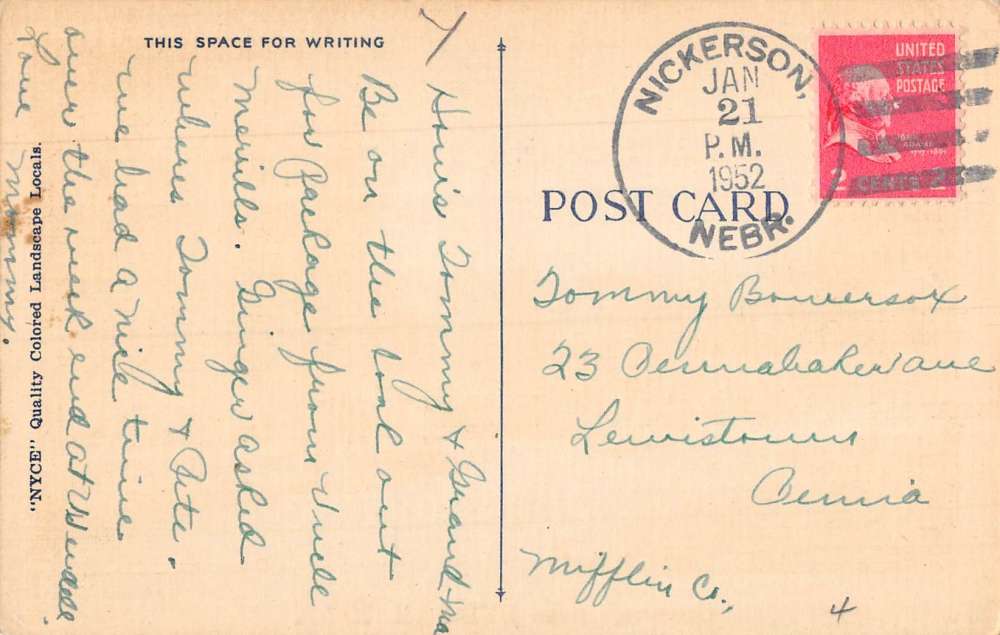 THIS SPACE FOR WRITING
How's Tommy & Grand-Ma
Be on the look out
for package from Uncle
Merrills. Ginger asked
wheres Tommy & Pete.
We had a nice time
over the week end at Wendells.
Love Mommy.
"NYCE" Quality Colored Landscape Locals.
POST CARD
NICKERSON,
JAN
21
P.M.
1952
NEBR.
UNITED
STATES
POSTAGE
2 CENTS 2
Tommy Bowersox
23 Pennabaker ave
Lewistown
Penna
Mifflin Co.,
4